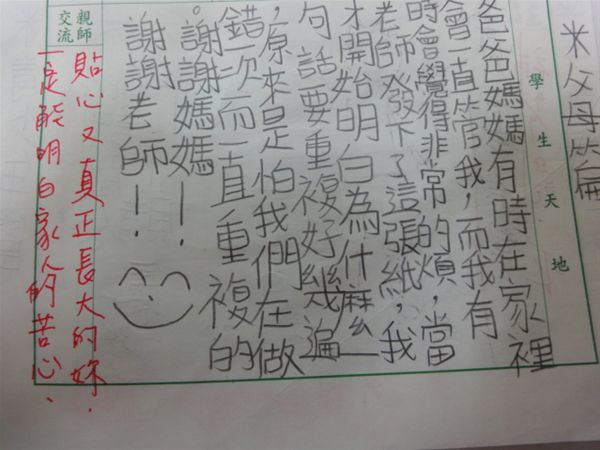 米父母篇
學生天地
爸爸媽媽有時在家裡
會一直管我，而我有
時會覺得非常的煩，當
老師發下了這張紙，我
才開始明白為什麼一
句話要重複好幾遍
，原來是怕我們在做
錯次而一直重複的
。謝謝媽媽！
謝謝老師！
親師
交流
貼心又真正長大的妳.
一定能明白家人的苦心.